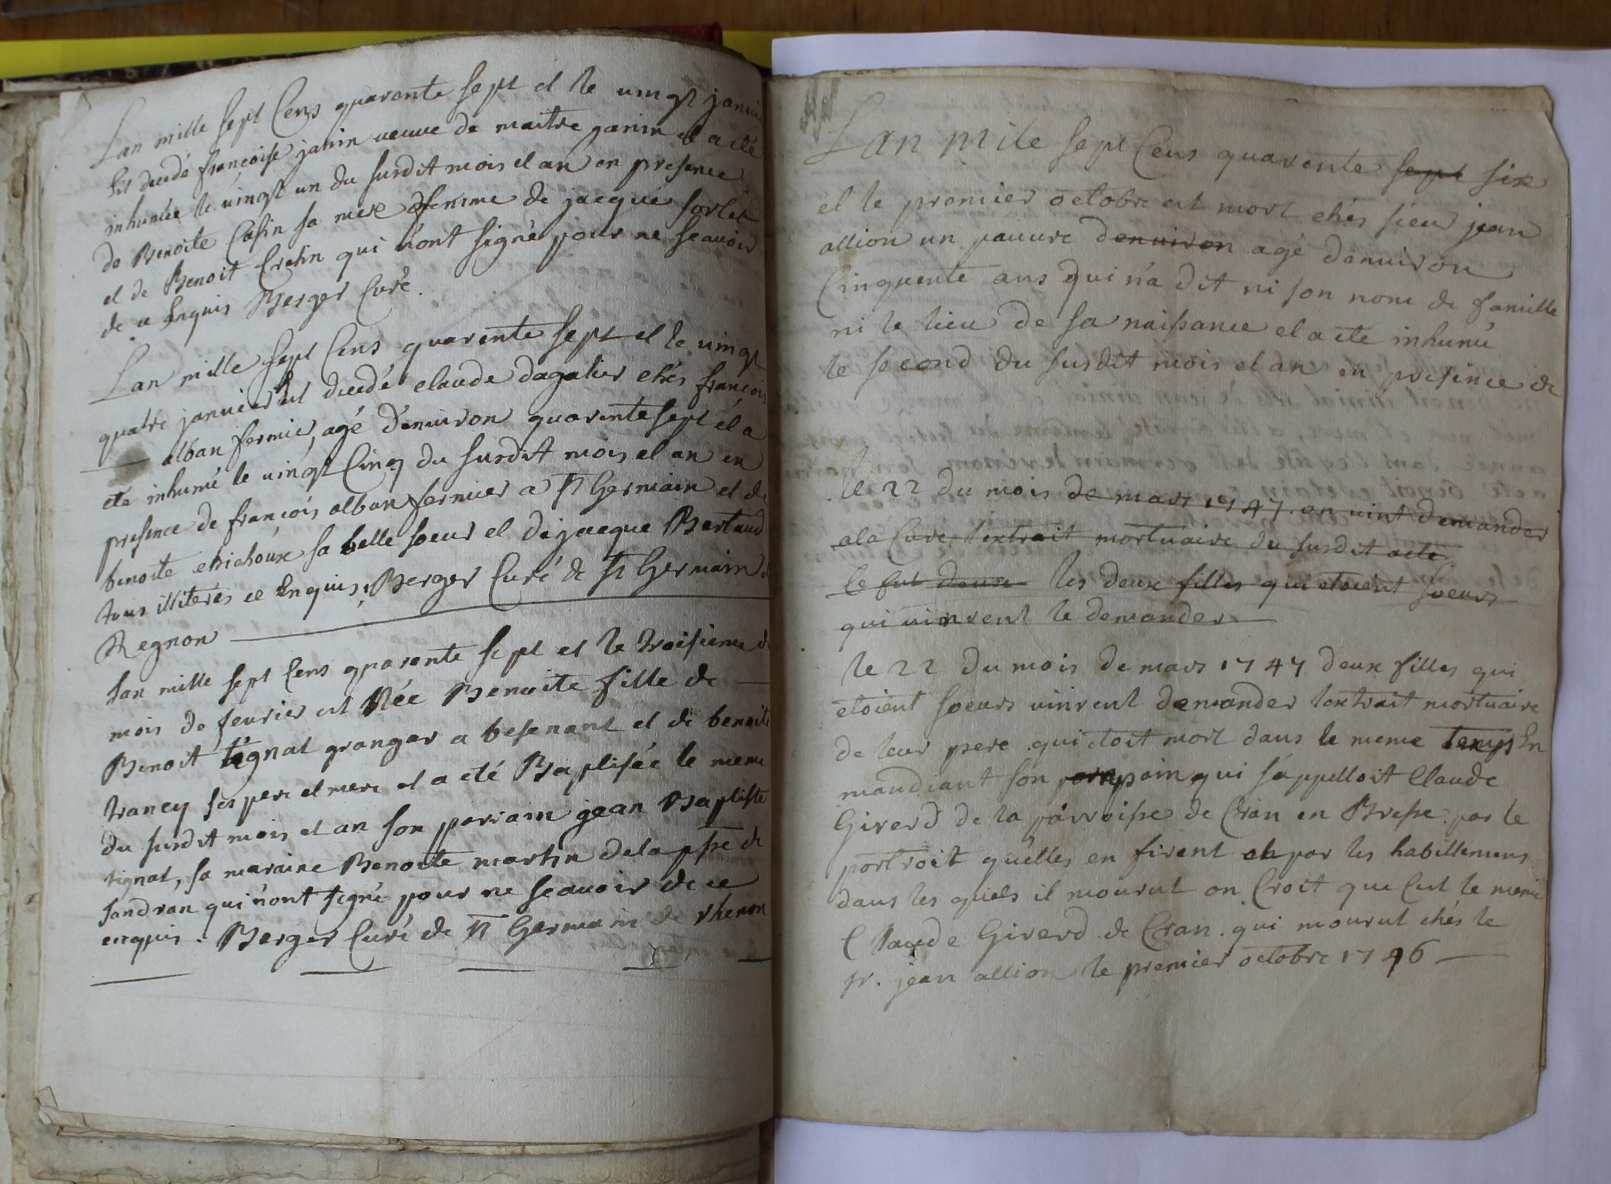 Lan mille sept Cens quarante sept et le vingt janvier
Est decedé francoise janin veuve de maitre janin et a eté
inhumée le vingt un du susdit mois et an en presence
de Benoite Casin sa mere femme de jacque sorlet
et de Benoit Crétin qui n'ont signé pour ne scavoir
de ce Enquis Berger Curé.
Lan mille sept Cens quarente sept et le vingt
quatre janvier est decedé claude dagalier chés francois
alban fermier, agé d'environ quarente sept et a
eté inhumé le vingt Cinq du susdit mois et an en
presence de francois alban fermier a st Germain et de
benoite chichoux sa belle soeur et de jacque Bertaud
tous illiterés ce Enquis, Berger Curé de st Germain de
Regnon
Lan mille sept Cens quarente sept et le troisieme du
mois de fevrier est Née Benoite fille de
Benoit tignat granger a besenant et de benoite
trancy ses pere et mere et a eté Baptisée le meme
du susdit mois et an son parrain jean Baptiste
tignat, sa maraine Benoite martin de la psse de
sandran qui n'ont signé pour ne scavoir de ce
enquis. Berger Curé de st Germain de rhenon
Lan mile sept Cens quarente sept six
et le premier octobre est mort chés sieu jean
allion un pauvre denviron agé d'anviron
Cinquente ans Qui n'a dit ni son nom de famille
ni le lieu de sa naissance et a ete inhumé
le second du susdit mois et an en presence de
le 22 du mois de mars 1747 on vint demander
a la Cure l'extrait mortuaire du susdit acte
ce fut deux les deux filles qui etoient soeurs
qui vinrent le demander
le 22 du mois de mars 1747 deux filles qui
etoient soeurs vinrent demander l'extrait mortuaire
de leur pere qui etoit mort dans le meme temps En
mandiant son pain, qui s'appelloit Claude
Girerd de la parroisse de Cran en Bresse: par le
portroit quelles en firent et par les habillemens
dans les quels il mourut on Croit que C'est le meme
Claude Girerd de Cran. qui mourut chés le
sr. jean allion le premier octobre 1746